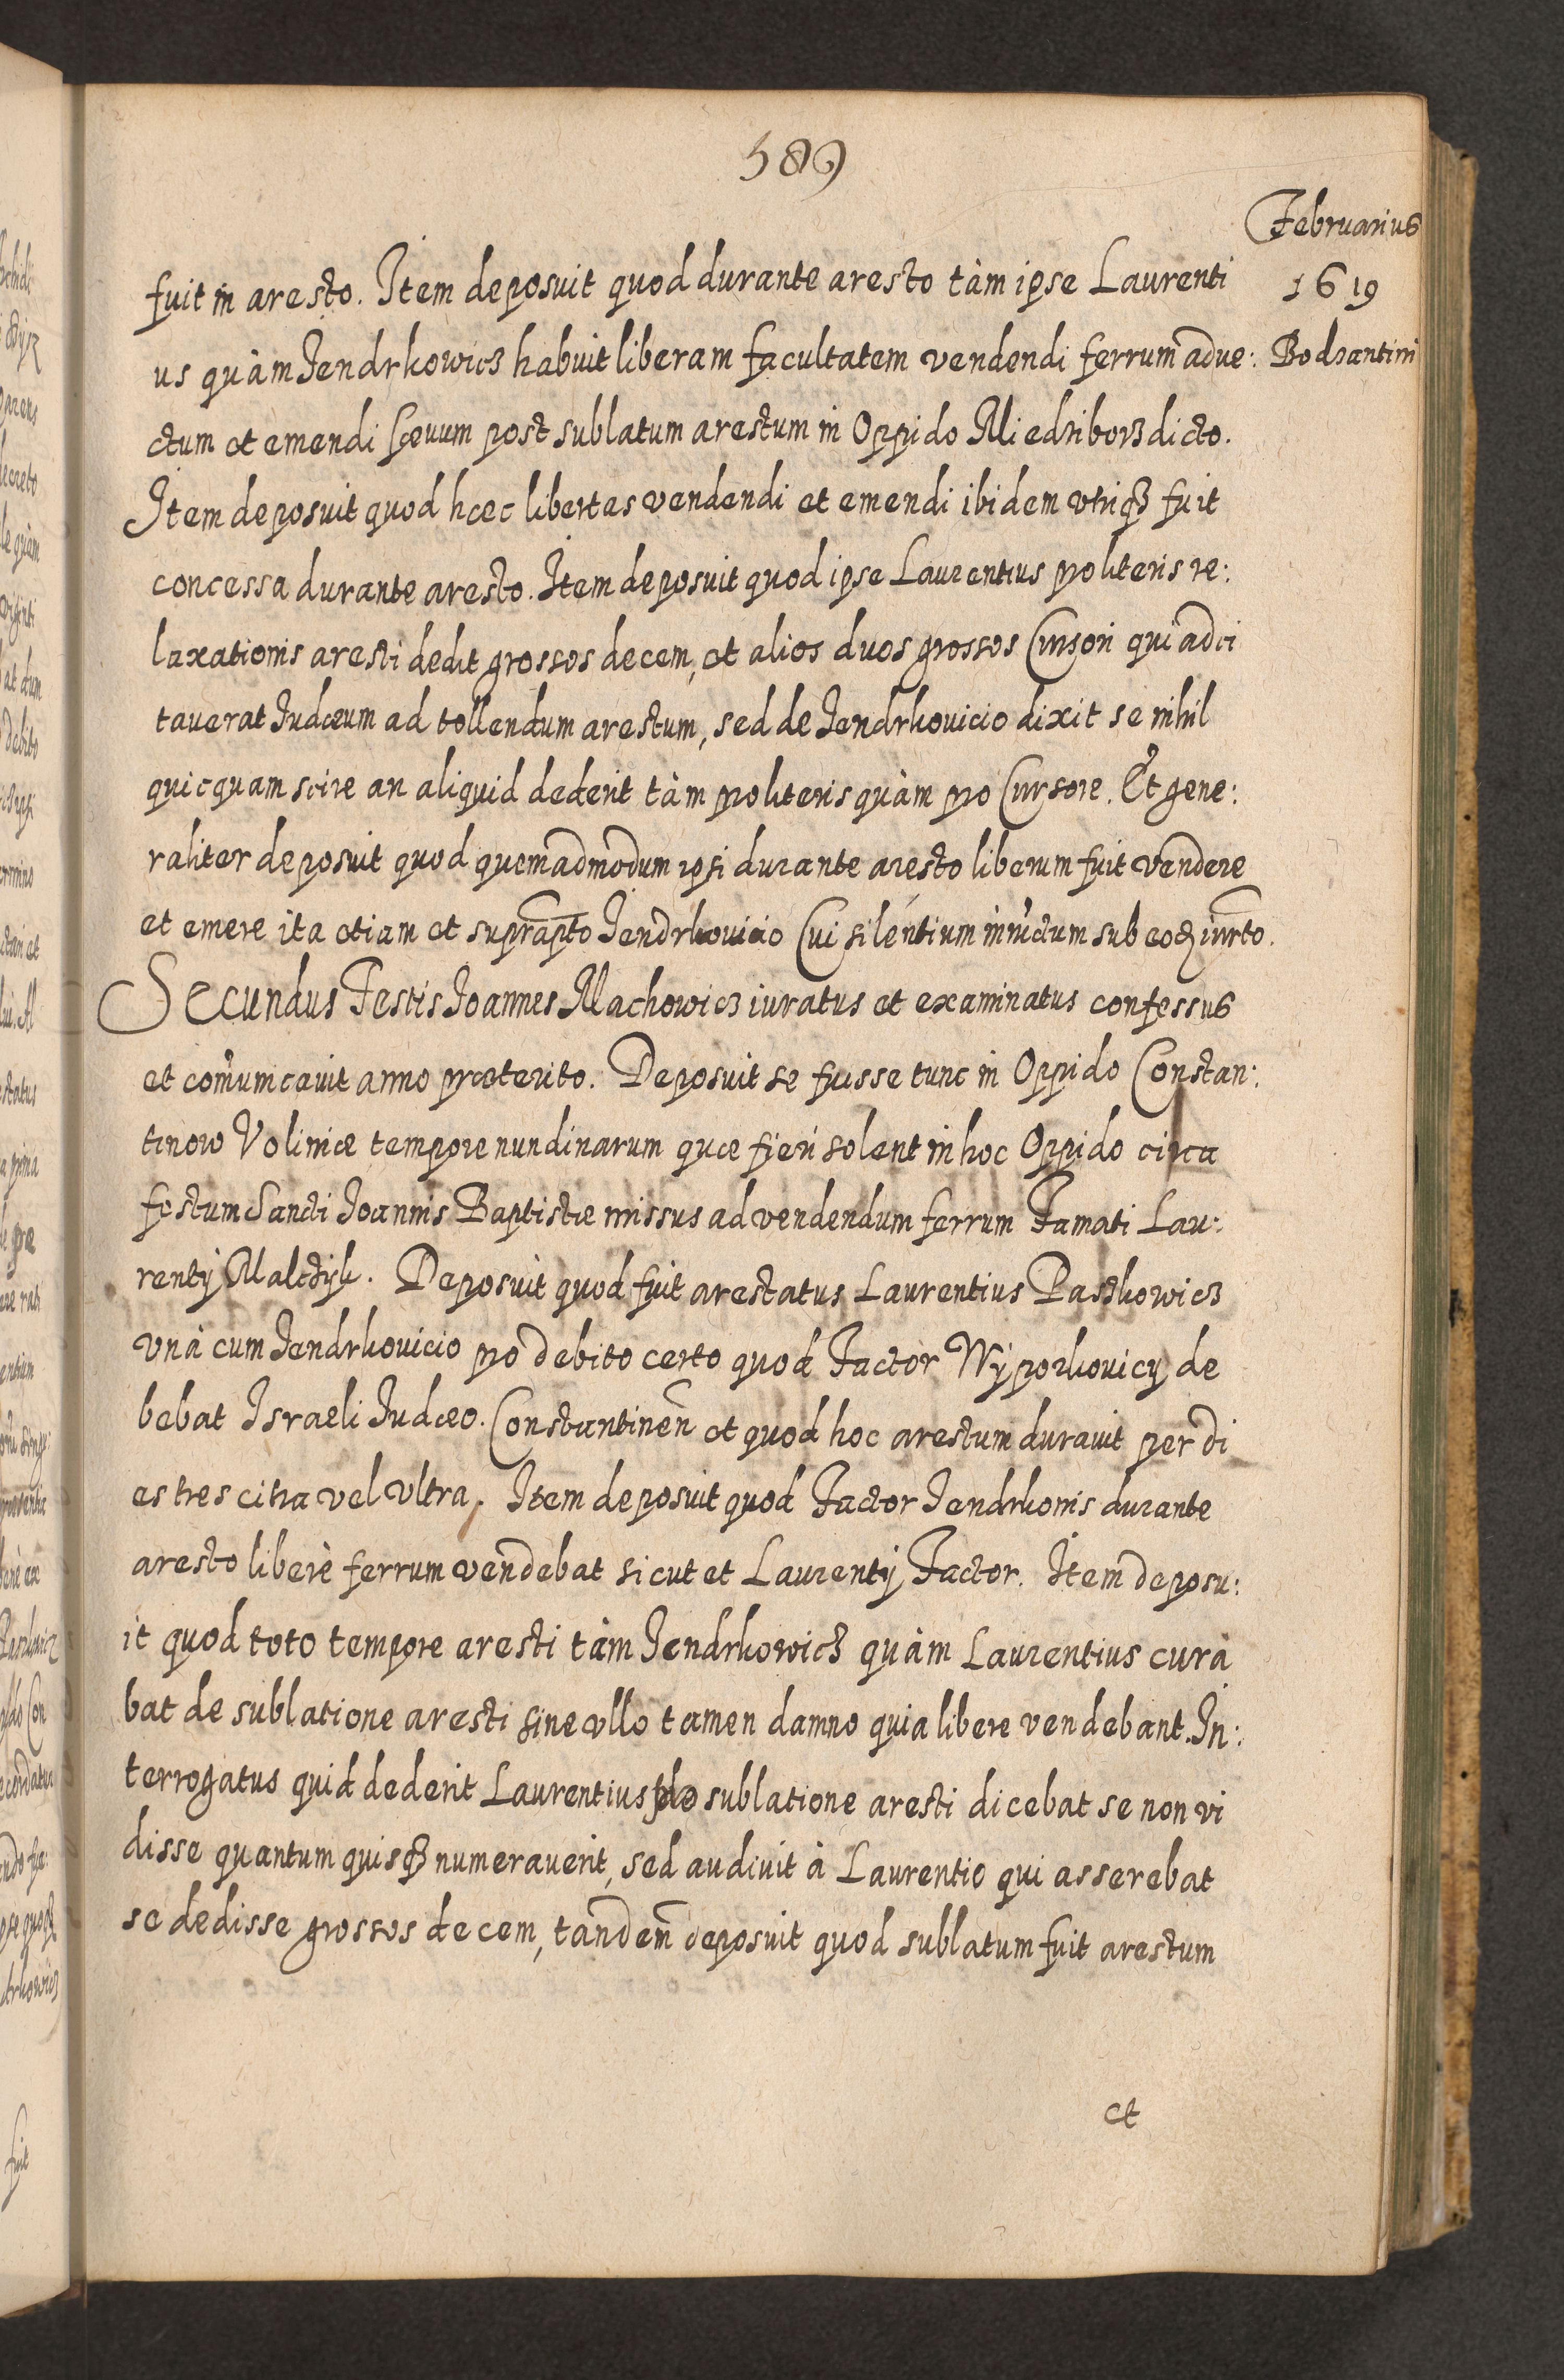 589
Februarius
1619
Bodzantini
fuit in aresto. Item deposuit quod durante aresto tàm ipse Laurenti
us quàm Jendrkowicz habuit liberam facultatem vendendi ferrum adue:
ctum et emendi sævum post sublatum arestum in Oppido Miedziborz dicto.
Item deposuit quod hæc libertas vendendi et emendi ibidem vtriqꝫ fuit
concessa durante aresto. Item deposuit quod ipse Laurentius pro literis re:
laxationis aresti dedit grossos decem, et alios duos grossos Cursori qui adci
tauerat Judæum ad tollendum arestum, sed de Jendrkouicio dixit se nihil
quicquam scire an aliquid dederit tàm pro literis quàm pro Cursore. Et gene:
raliter deposuit quod quemadmodum ipsi durante aresto liberum fuit vendere
et emere ita etiam et suprapto Jendrkouicio Cui silentium iniuctum sub eodꝫ iurto.
Secundus Testis Joannes Machowicz iuratus et examinatus confessus
et com̃unicauit anno præterito. Deposuit se fuisse tunc in Oppido Constan:
tinow Voliniæ tempore nundinarum quæ fieri solent in hoc Oppido circa
festum Sancti Joannis Baptistæ missus ad vendendum ferrum Famati Lau:
rentij Malczÿk. Deposuit quod fuit arestatus Laurentius Paszkowicz
vnà cum Jendrkouicio pro debito certo quod Factor Wÿporkouicij de
bebat Israeli Judæo. Constantinen̄ et quod hoc arestum durauit per di
es tres citra vel vltra, Item deposuit quod Factor Jendrkonis durante
aresto liberè ferrum vendebat sicut et Laurentij Factor. Item deposu:
it quod toto tempore aresti tàm Jendrkowicz quàm Laurentius cura
bat de sublatione aresti sine vllo tamen damno quia libere vendebant. In:
terrogatus quid dederit Laurentius de sublatione aresti dicebat se non vi
disse quantum quisqꝫ numerauerit, sed audiuit à Laurentio qui asserebat
se dedisse grossos decem, tandem deposuit quod sublatum fuit arestum
et